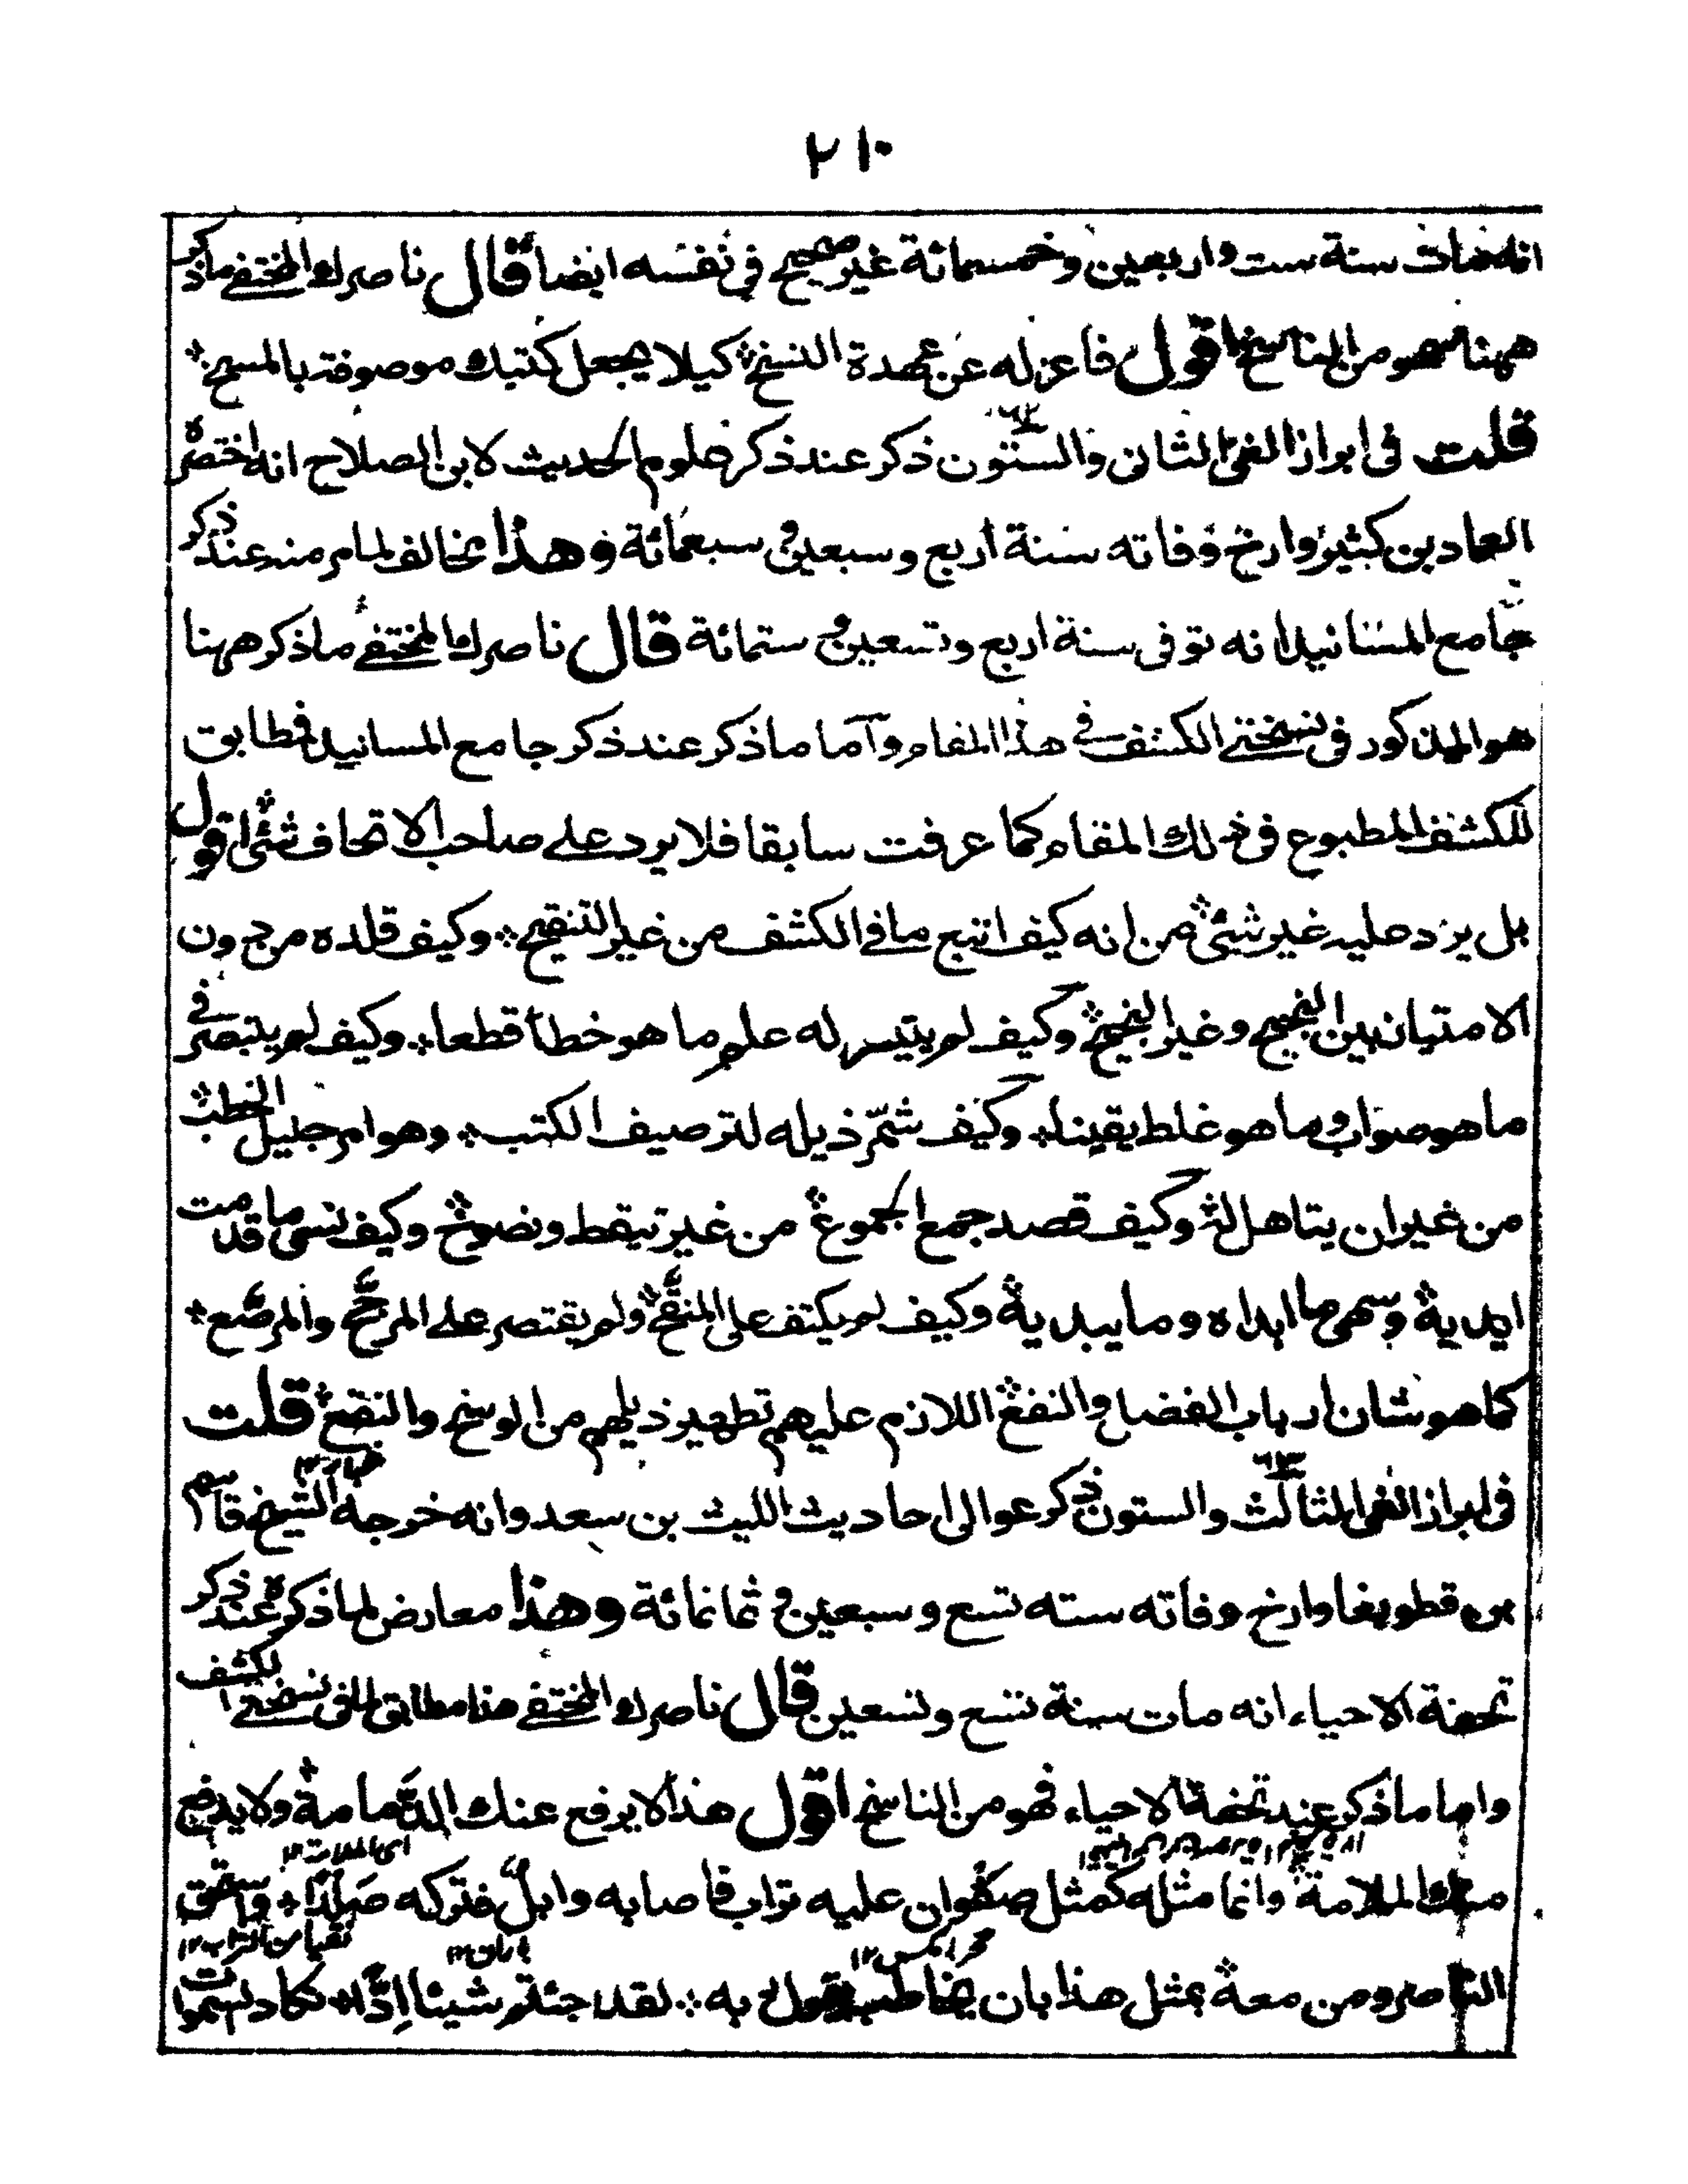 ٢١٠
انه مات سنة ست واربعين وخمسمائة غير صحيح في نفسه ايضا قال ناصرك المختفي ماذكر
ههنا سهو من الناسخ اقول فاعزله عن عهدة النسخ * كيلا يجعل كتبك موصوفة بالمسخ *
قلت في ابراز الغي الثاني والستون ذكر عند ذكر علوم الحديث لابن الصلاح انه اختصره
العماد بن كثير وارخ وفاته سنة اربع وسبعين وسبعمائة وهذا مخالف لما مر منه عند ذكر
جامع المسانيد انه توفي سنة اربع وتسعين وستمائة قال ناصرك المختفي ماذكر ههنا
هو المذكور في نسختي الكشف في هذا المقام واما ما ذكر عند ذكر جامع المسانيد فطابق
للكشف المطبوع في ذلك المقام كما عرفت سابقا فلا يرد على صاحب الاتحاف شئ اقول
بل يرد عليه غير شئ * من انه كيف اتبع ما في الكشف من غير التنقيح * وكيف قلده من دون
الامتياز بين النجيح وغير النجيح * وكيف لم يتيسر له علم ما هو خطأ قطعا * وكيف لم يتبصر في
ما هو صواب وما هو غلط يقينا * وكيف شمّر ذيله لترصيف الكتب * وهو امر جليل الخطب *
من غير ان يتاهل له * وكيف قصد جمع الجموع * من غير تيقظ ونضوج * وكيف نسى ما قدمت
ايديه * وسهى ما ابداه وما يبديه * وكيف لم يكتف على المنقّح * ولم يقتصر على المرجّح والمرصّع *
كما هو شان ارباب الفضاح والنفع * اللازم عليهم تطهير ذيلهم من الوسخ والنقع * قلت
في ابراز الغي الثالث والستون ذكر عوالي احاديث الليث بن سعد وانه خرجه الشيخ قاسم
بن قطوبغا وارخ وفاته سنه تسع وسبعين وثمانمائة وهذا معارض لما ذكره عند ذكر
تحفة الاحياء انه مات سنة تسع وتسعين قال ناصرك المختفي هذا مطابق لما في نسختي الكشف
واما ما ذكر عند تحفة الاحياء فهو من الناسخ اقول هذا لا يرفع عنك الدّمامة * ولا يدفع
منك الملامة * وانما مثله كمثل صفوان عليه تراب فاصابه وابل فتركه صلدا *
اى الملامة ١٢
نقيا من التراب ١٢
باران ١٢
حجر املس ١٢
الناصر ومن معه * بمثل هذا بان يخاطب بقول به * لقد جئتم شيئا ادّا * تكاد السموات